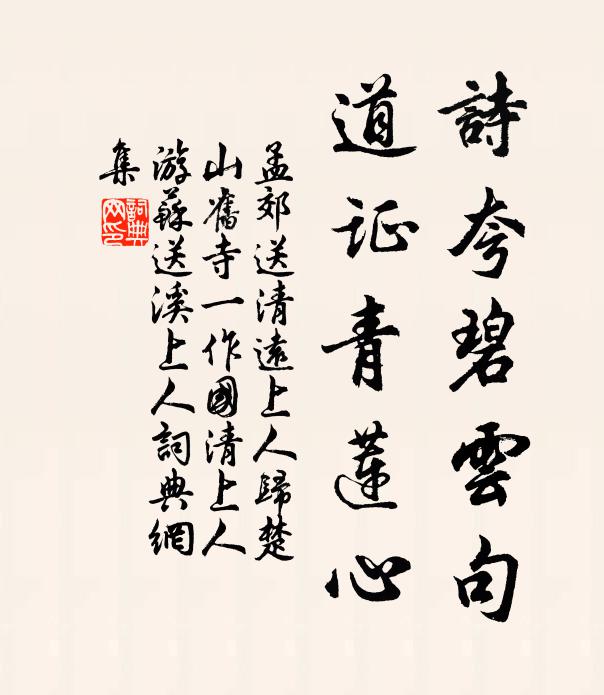 詩夸碧雲句
道证青蓮心
孟郊送清遠上人歸楚
山舊寺一作國清上人
游蘇送溪上人詞典網
集
詞典网印